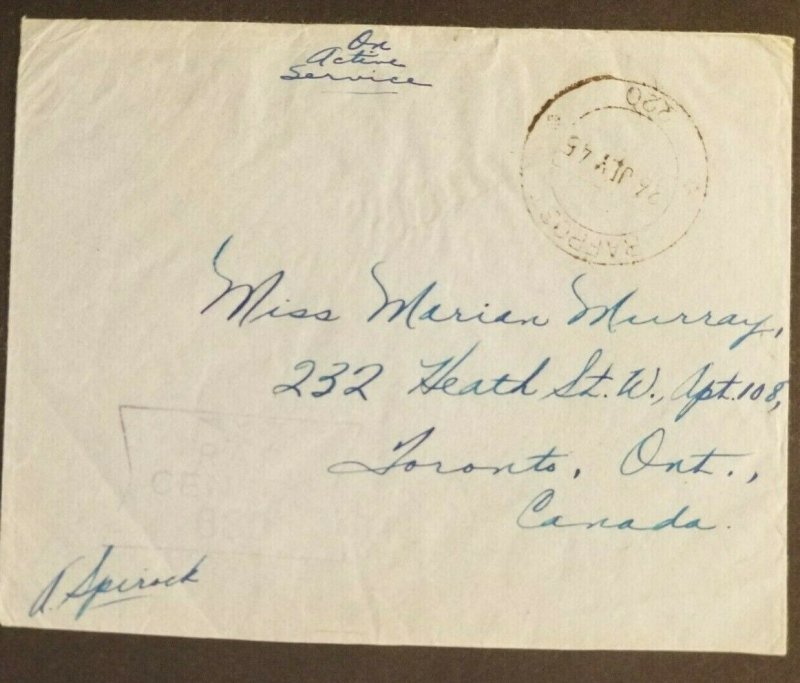 On
Active
Service
220
24 JLY 45
RAFPOST
Miss Marian Murray,
232 Heath St. W., Apt. 108,
Toronto, Ont.,
Canada.
A. Spirock